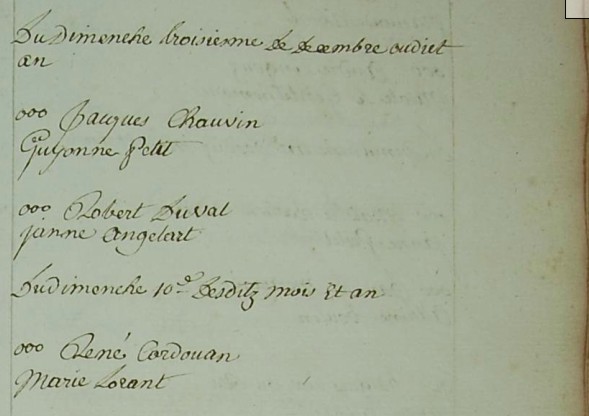 Du Dimenche troisienme de decembre oudict
an
ooo Jacques Chauvin
Guyonne Petit
ooo Robert Duval
janne Angelart
Du dimenche 10e desditz mois Et an
ooo René Cordouan
Marie Lorant